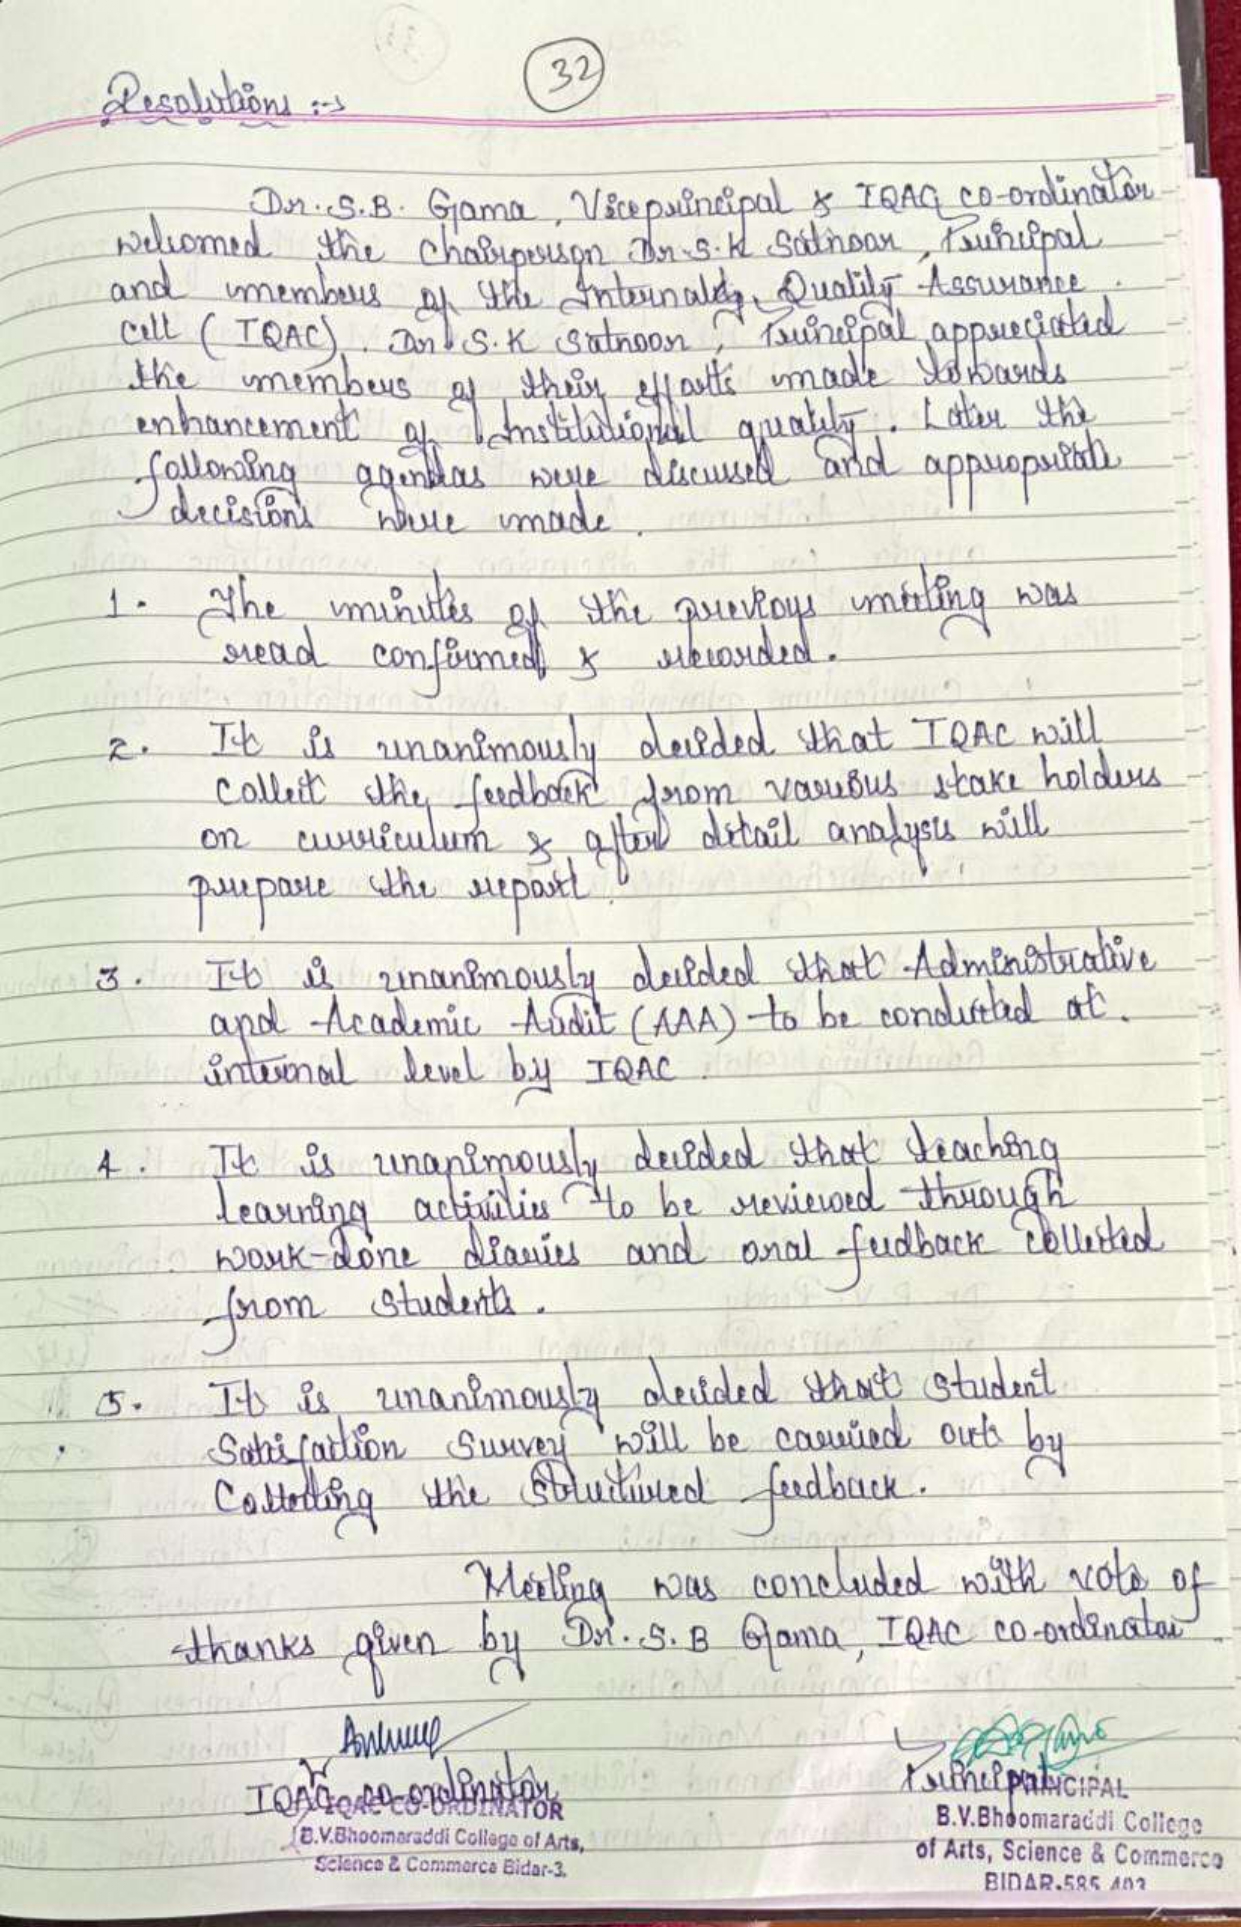 32
Resolutions :-
Dr. S.B. Gama, Viceprincipal & IQAC co-ordinator
welcomed the Chairperson Dr. S.K Satnoor, Principal
and members of the Internal Quality Assurance
cell (IQAC). Dr. S.K Satnoor, Principal appreciated
the members of their efforts made towards
enhancement of Institutional quality. Later the
following agendas were discussed and appropriate
decisions were made.
1. The minutes of the previous meeting was
read confirmed & recorded.
2. It is unanimously decided that IQAC will
collect the feedback from various stake holders
on curriculum & after detail analysis will
prepare the report.
3. It is unanimously decided that Administrative
and Academic Audit (AAA) to be conducted at
internal level by IQAC.
4. It is unanimously decided that teaching
learning activities to be reviewed through
work-done diaries and oral feedback collected
from students.
5. It is unanimously decided that student
Satisfaction Survey will be carried out by
Collecting the structured feedback.
Meeting was concluded with vote of
thanks given by Dr. S.B Gama, IQAC co-ordinator.
IQAC co-ordinator
IQAC CO-ORDINATOR
B.V.Bhoomaraddi College of Arts,
Science & Commerce Bidar-3.
Principal
PRINCIPAL
B.V.Bhoomaraddi College
of Arts, Science & Commerce
BIDAR-585 403